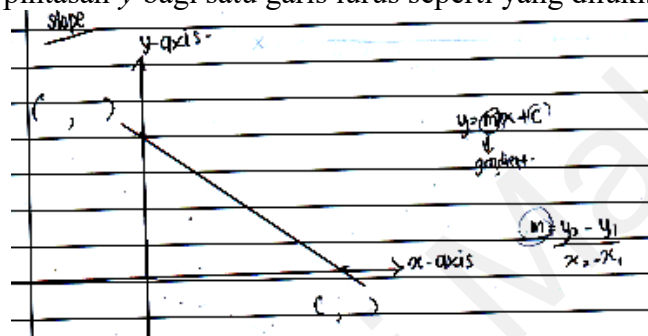 pintasan y bagi satu garis lurus seperti yang
slope
y-axis.
x
( , )
y=mx+c
gradient.
m = y₂-y₁
x₂-x₁
x-axis
( , )